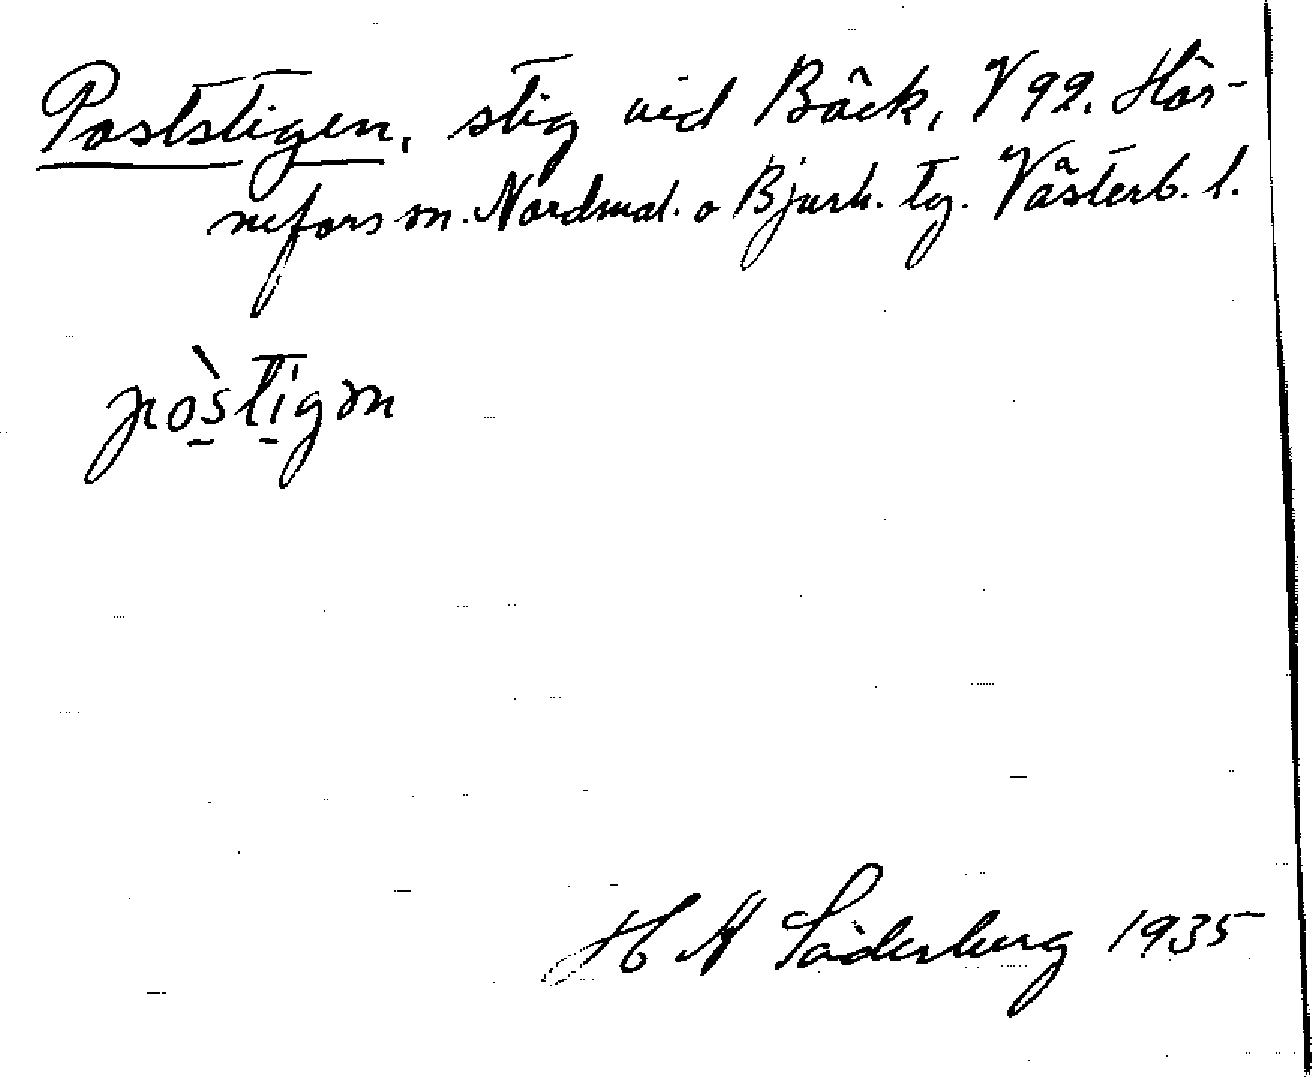 Poststigen, stig vid Bäck, V 99. Hör-
nefors sn. Nordmal. o Bjurh. tg. Västerb. l.
pòstigən
H N Söderberg 1935